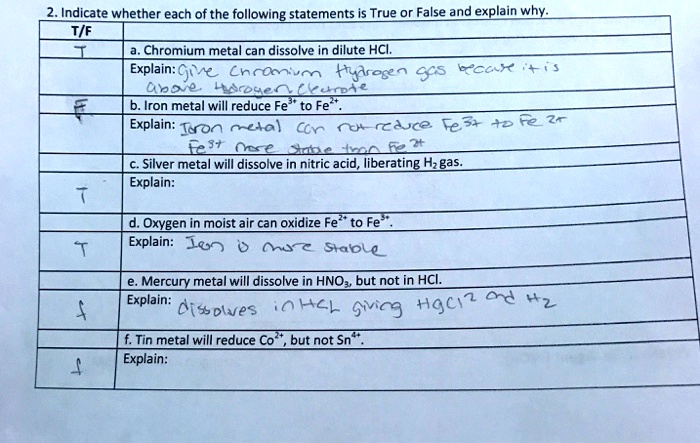 2. Indicate whether each of the following statements is True or False and explain why.
T/F
T
a. Chromium metal can dissolve in dilute HCl.
Explain: Give Chromium Hydrogen gas because it is
above Hydrogen Electrode
F
b. Iron metal will reduce Fe³⁺ to Fe²⁺.
Explain: Iron metal can not reduce Fe 3+ to Fe 2+
Fe 3+ more stable than Fe 2+
c. Silver metal will dissolve in nitric acid, liberating H₂ gas.
T
Explain:
d. Oxygen in moist air can oxidize Fe²⁺ to Fe³⁺.
T
Explain: Ion is more stable
e. Mercury metal will dissolve in HNO₃, but not in HCl.
f
Explain: dissolves in HCL giving HgCl2 and H2
f. Tin metal will reduce Co²⁺, but not Sn⁴⁺.
f
Explain: